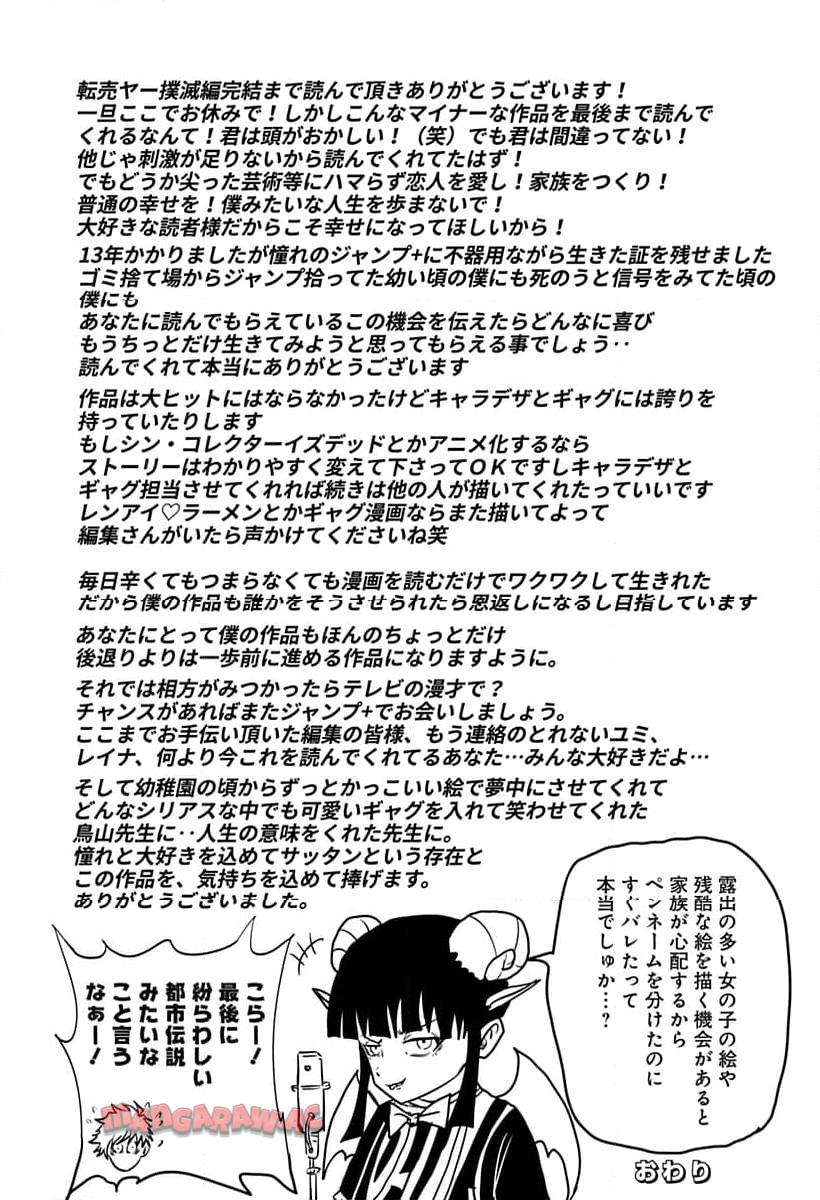 転売ヤー撲滅編完結まで読んで頂きありがとうございます！
一旦ここでお休みで！しかしこんなマイナーな作品を最後まで読んで
くれるなんて！君は頭がおかしい！（笑）でも君は間違ってない！
他じゃ刺激が足りないから読んでくれてたはず！
でもどうか尖った芸術等にハマらず恋人を愛し！家族をつくり！
普通の幸せを！僕みたいな人生を歩まないで！
大好きな読者様だからこそ幸せになってほしいから！
13年かかりましたが憧れのジャンプ+に不器用ながら生きた証を残せました
ゴミ捨て場からジャンプ拾ってた幼い頃の僕にも死のうと信号をみてた頃の
僕にも
あなたに読んでもらえているこの機会を伝えたらどんなに喜び
もうちっとだけ生きてみようと思ってもらえる事でしょう‥
読んでくれて本当にありがとうございます
作品は大ヒットにはならなかったけどキャラデザとギャグには誇りを
持っていたりします
もしシン・コレクターイズデッドとかアニメ化するなら
ストーリーはわかりやすく変えて下さってＯＫですしキャラデザと
ギャグ担当させてくれれば続きは他の人が描いてくれたっていいです
レンアイ♡ラーメンとかギャグ漫画ならまた描いてよって
編集さんがいたら声かけてくださいね笑
毎日辛くてもつまらなくても漫画を読むだけでワクワクして生きれた
だから僕の作品も誰かをそうさせられたら恩返しになるし目指しています
あなたにとって僕の作品もほんのちょっとだけ
後退りよりは一歩前に進める作品になりますように。
それでは相方がみつかったらテレビの漫才で？
チャンスがあればまたジャンプ+でお会いしましょう。
ここまでお手伝い頂いた編集の皆様、もう連絡のとれないユミ、
レイナ、何より今これを読んでくれてるあなた…みんな大好きだよ…
そして幼稚園の頃からずっとかっこいい絵で夢中にさせてくれて
どんなシリアスな中でも可愛いギャグを入れて笑わせてくれた
鳥山先生に‥人生の意味をくれた先生に。
憧れと大好きを込めてサッタンという存在と
この作品を、気持ちを込めて捧げます。
ありがとうございました。
露出の多い女の子の絵や
残酷な絵を描く機会があると
家族が心配するから
ペンネームを分けたのに
すぐバレたって
本当でしゅか…？
こらー！
最後に
紛らわしい
都市伝説
みたいな
こと言う
なぁー！
MANGARAW.AC
おわり